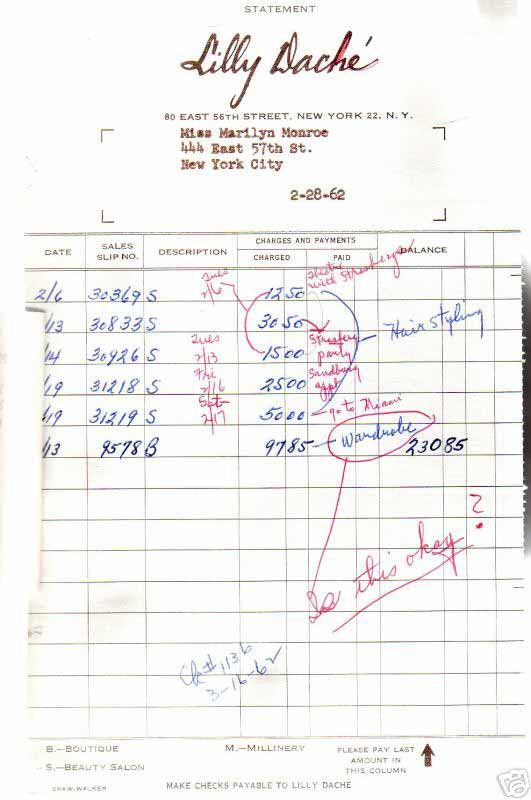 STATEMENT
Lilly Daché
80 EAST 56TH STREET, NEW YORK 22, N. Y.
Miss Marilyn Monroe
444 East 57th St.
New York City
2-28-62
DATE SALES SLIP NO. DESCRIPTION CHARGES AND PAYMENTS CHARGED PAID BALANCE
Tues 2/6 theatre with Strasbergs
2/6 30369 S 1250
/13 30833 S 3050 Hair Styling
Tues 2/13 Strasberg party
/14 30926 S 1500
Fri 2/16 Sandburg appt
/19 31218 S 2500
Sat 2/17 go to Miami
/19 31219 S 5000
/13 9578 B 9785 — Wardrobe 23085
Is this okay?
Ck # 1136
3-16-62
B.—BOUTIQUE M.—MILLINERY PLEASE PAY LAST AMOUNT IN THIS COLUMN
S.—BEAUTY SALON
SHAW-WALKER MAKE CHECKS PAYABLE TO LILLY DACHE